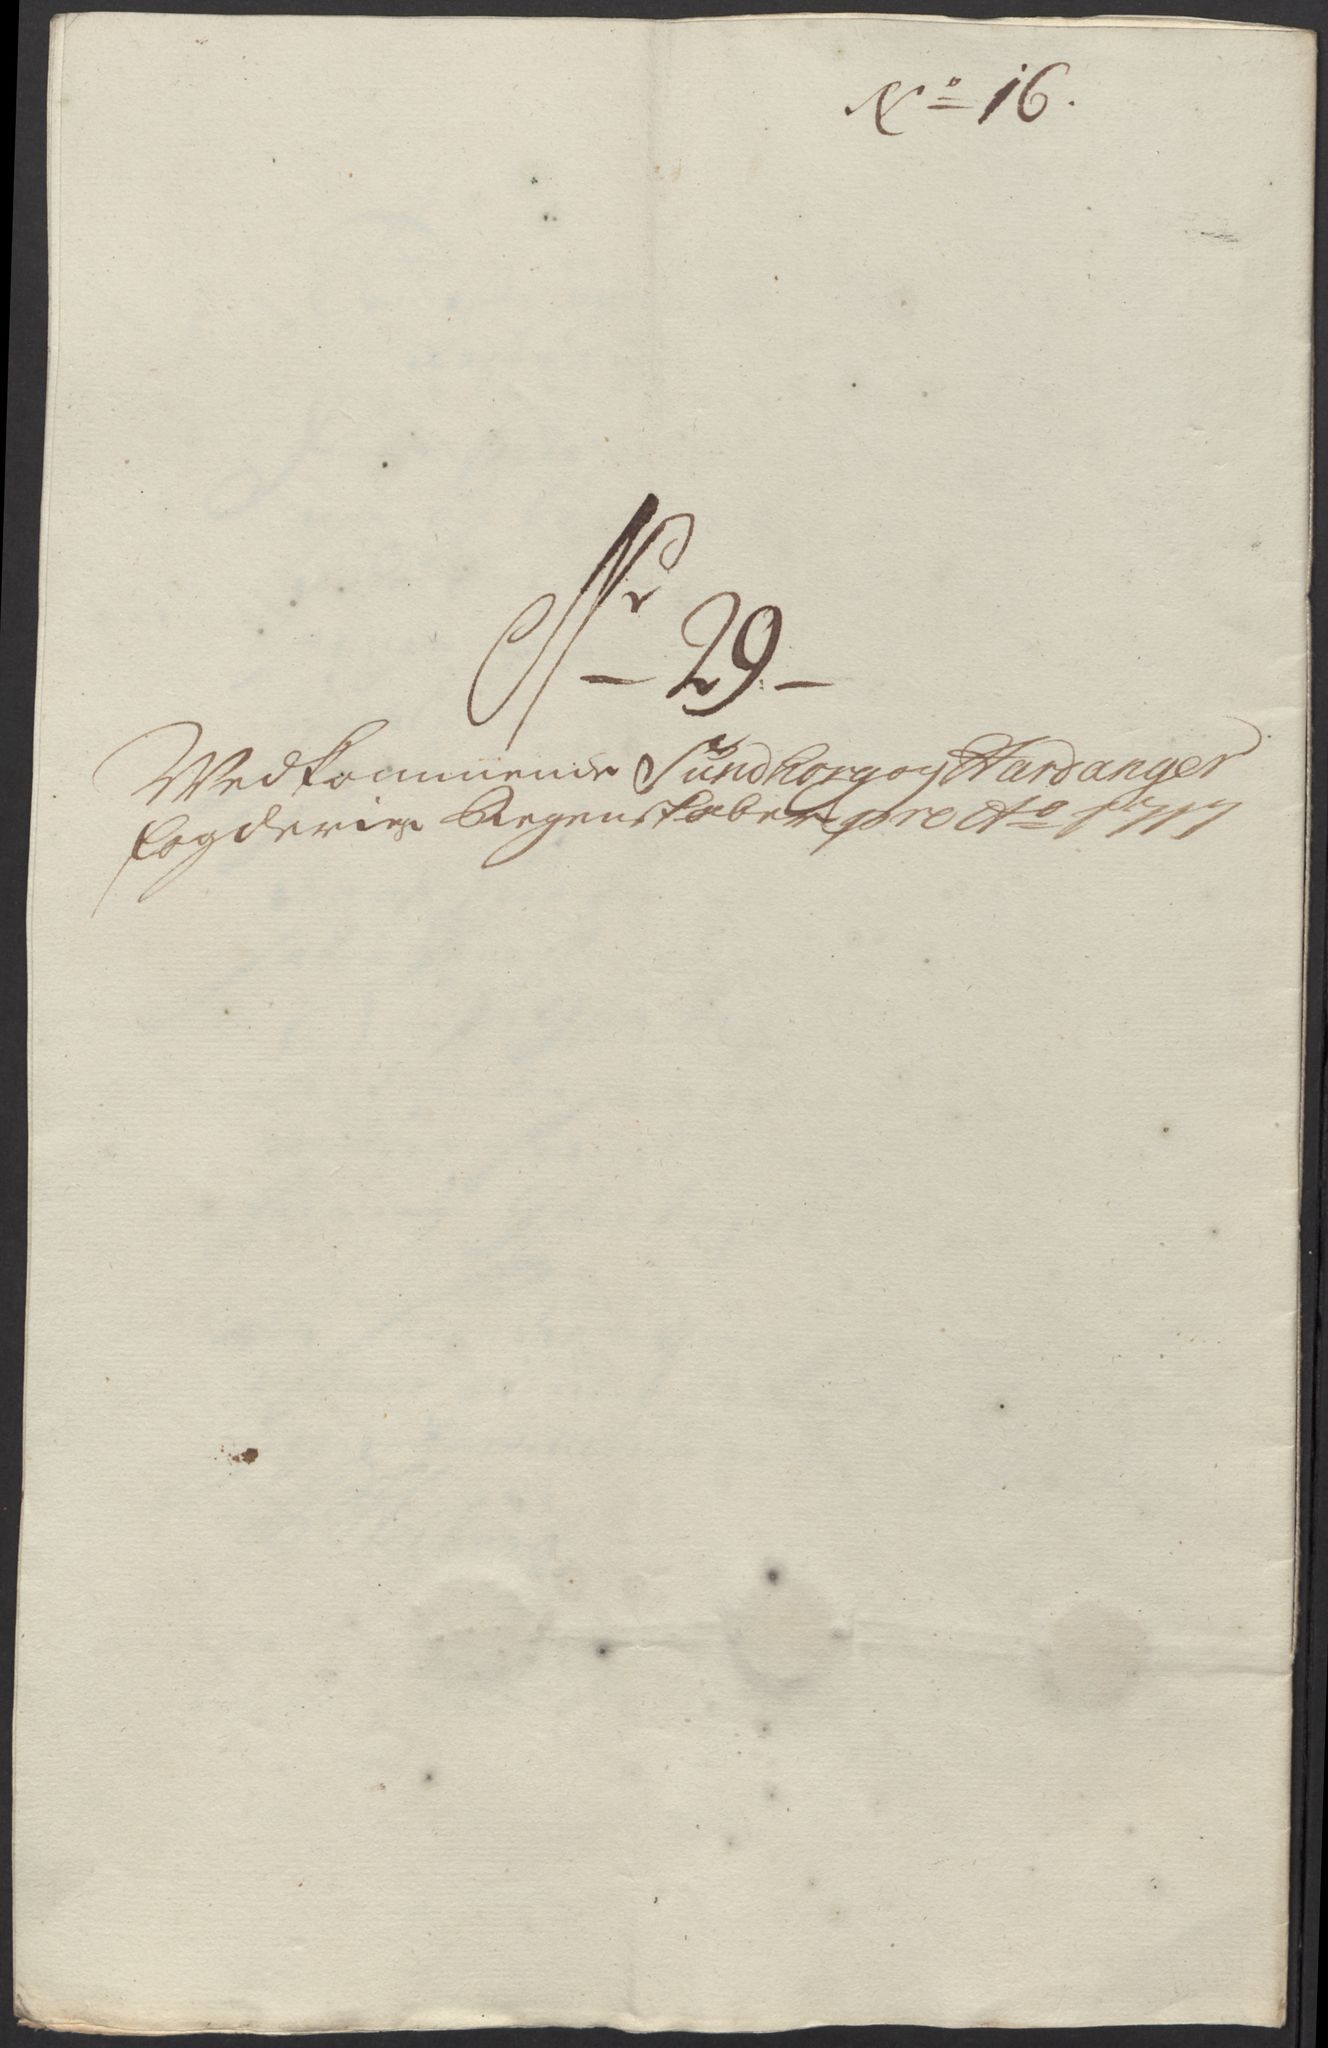 No 16.
Nr
- 29 -
Vedkommende Sundhorg og Hardanger
fogderiers Regenskaber pro Ao 1717